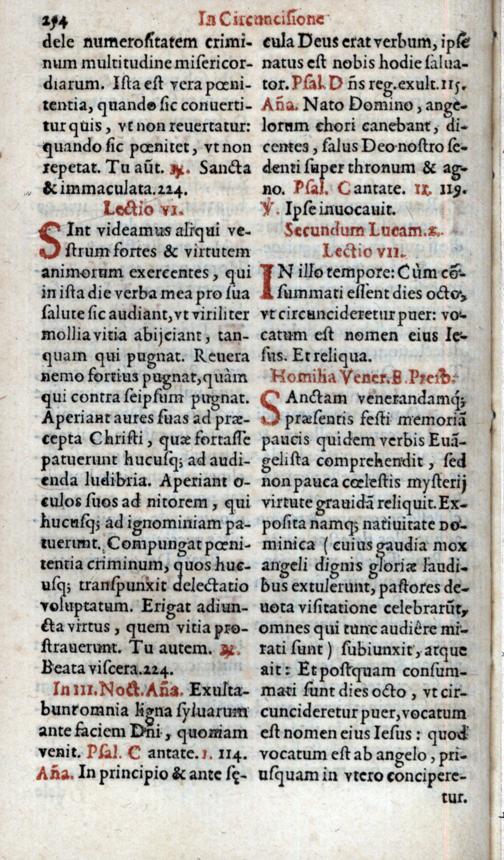 294 In Circuncisione
dele numerositatem crimi-
num multitudine misericor-
diarum. Ista est vera pœni-
tentia, quando sic conuerti-
tur quis, vt non reuertatur:
quando sic pœnitet, vt non
repetat. Tu aũt. ℟. Sancta
& immaculata.224.
Lectio vi.
SInt videamus aliqui ve-
strum fortes & virtutem
animorum exercentes, qui
in ista die verba mea pro sua
salute sic audiant, vt viriliter
mollia vitia abijciant, tan-
quam qui pugnat. Reuera
nemo fortius pugnat, quàm
qui contra seipsum pugnat.
Aperiant aures suas ad præ-
cepta Christi, quæ fortasse
patuerunt hucusq; ad audi-
enda ludibria. Aperiant o-
culos suos ad nitorem, qui
hucusq; ad ignominiam pa-
tuerunt. Compungat pœni-
tentia criminum, quos huc-
usq; transpunxit delectatio
voluptatum. Erigat adiun-
cta virtus, quem vitia pro-
strauerunt. Tu autem. ℟.
Beata viscera.224.
In III. Noct. Aña. Exulta-
bunt omnia ligna syluarum
ante faciem Dñi, quoniam
venit. Psal. Cantate.1. 114.
Aña. In principio & ante sę-
cula Deus erat verbum, ipse
natus est nobis hodie salua-
tor. Psal. Dñs reg. exult.115.
Aña. Nato Domino, ange-
lorum chori canebant, di-
centes, salus Deo nostro se-
denti super thronum & ag-
no. Psal. Cantate. 11. 119.
℣. Ipse inuocauit.
Secundum Lucam.2.
Lectio vii.
IN illo tempore: Cùm cõ-
summati essent dies octo,
vt circuncideretur puer: vo-
catum est nomen eius Ie-
sus. Et reliqua.
Homilia Vener. B. Presb.
SAnctam venerandamq;
præsentis festi memoriã
paucis quidem verbis Euã-
gelista comprehendit, sed
non pauca cœlestis mysterij
virtute grauidã reliquit. Ex-
posita namq; natiuitate do-
minica (cuius gaudia mox
angeli dignis gloriæ laudi-
bus extulerunt, pastores de-
uota visitatione celebrarũt,
omnes qui tunc audiêre mi-
rati sunt) subiunxit, atque
ait: Et postquam consum-
mati sunt dies octo, vt cir-
cuncideretur puer, vocatum
est nomen eius Iesus: quod
vocatum est ab angelo, pri-
usquam in vtero concipere-
tur.